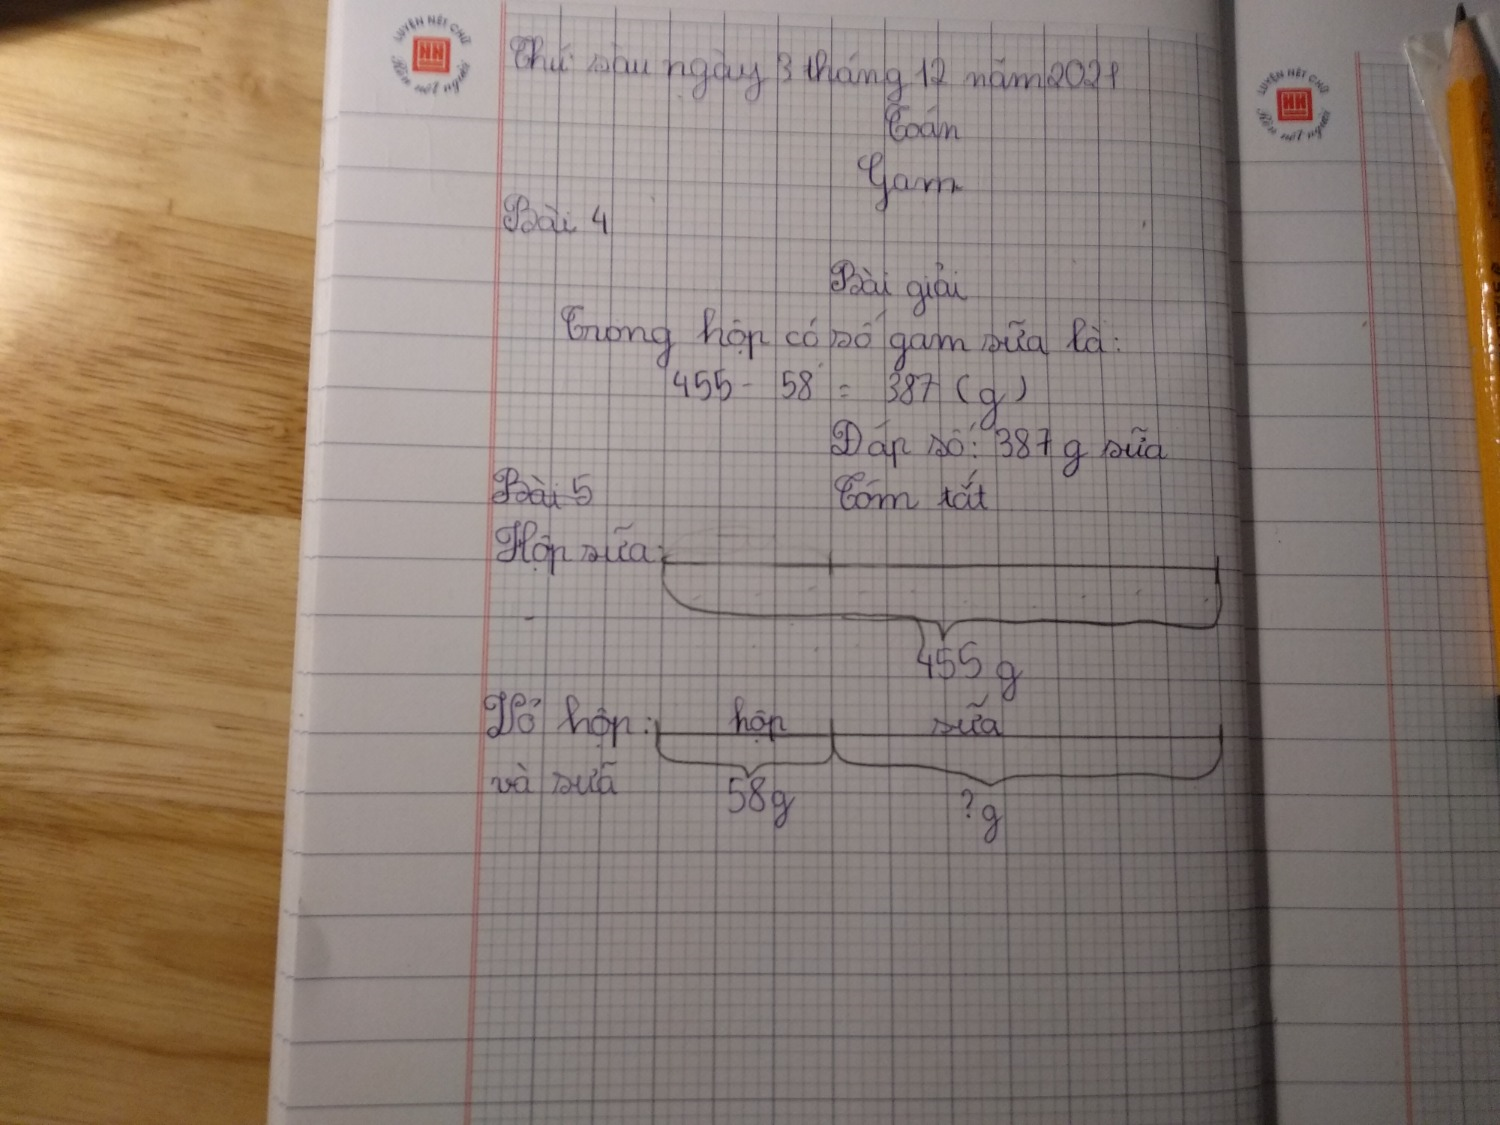 LUYỆN NÉT CHỮ
HN
Rèn nết người
Thứ sáu ngày 3 tháng 12 năm 2021
Toán
Gam
Bài 4
Bài giải
Trong hộp có số gam sữa là:
455 - 58 = 387 (g)
Đáp số: 387 g sữa
Bài 5 Tóm tắt
Hộp sữa:
455 g
Vỏ hộp: hộp sữa
và sữa 58g ?g
LUYỆN NÉT CHỮ
HN
Rèn nết người